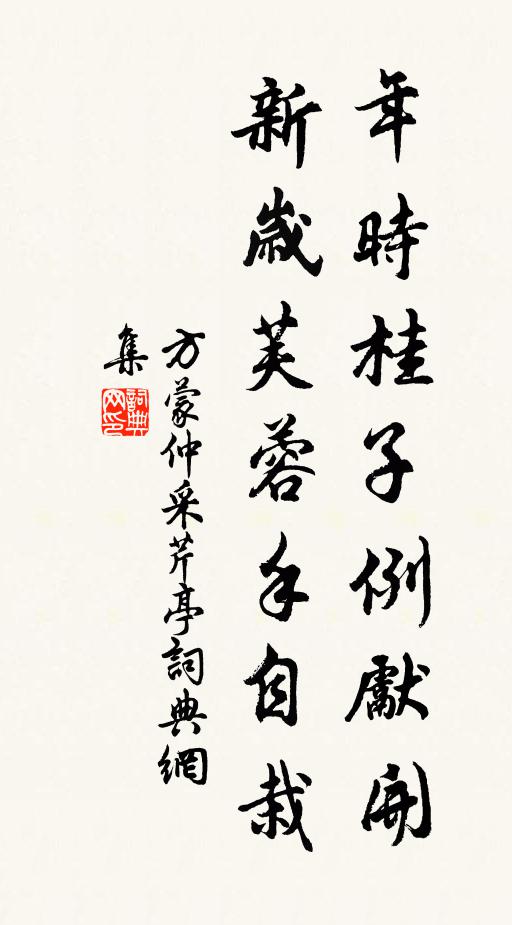 年時桂子例獻開
新歲芙蓉手自栽
方蒙仲采芹亭詞典網
集
詞典
网印